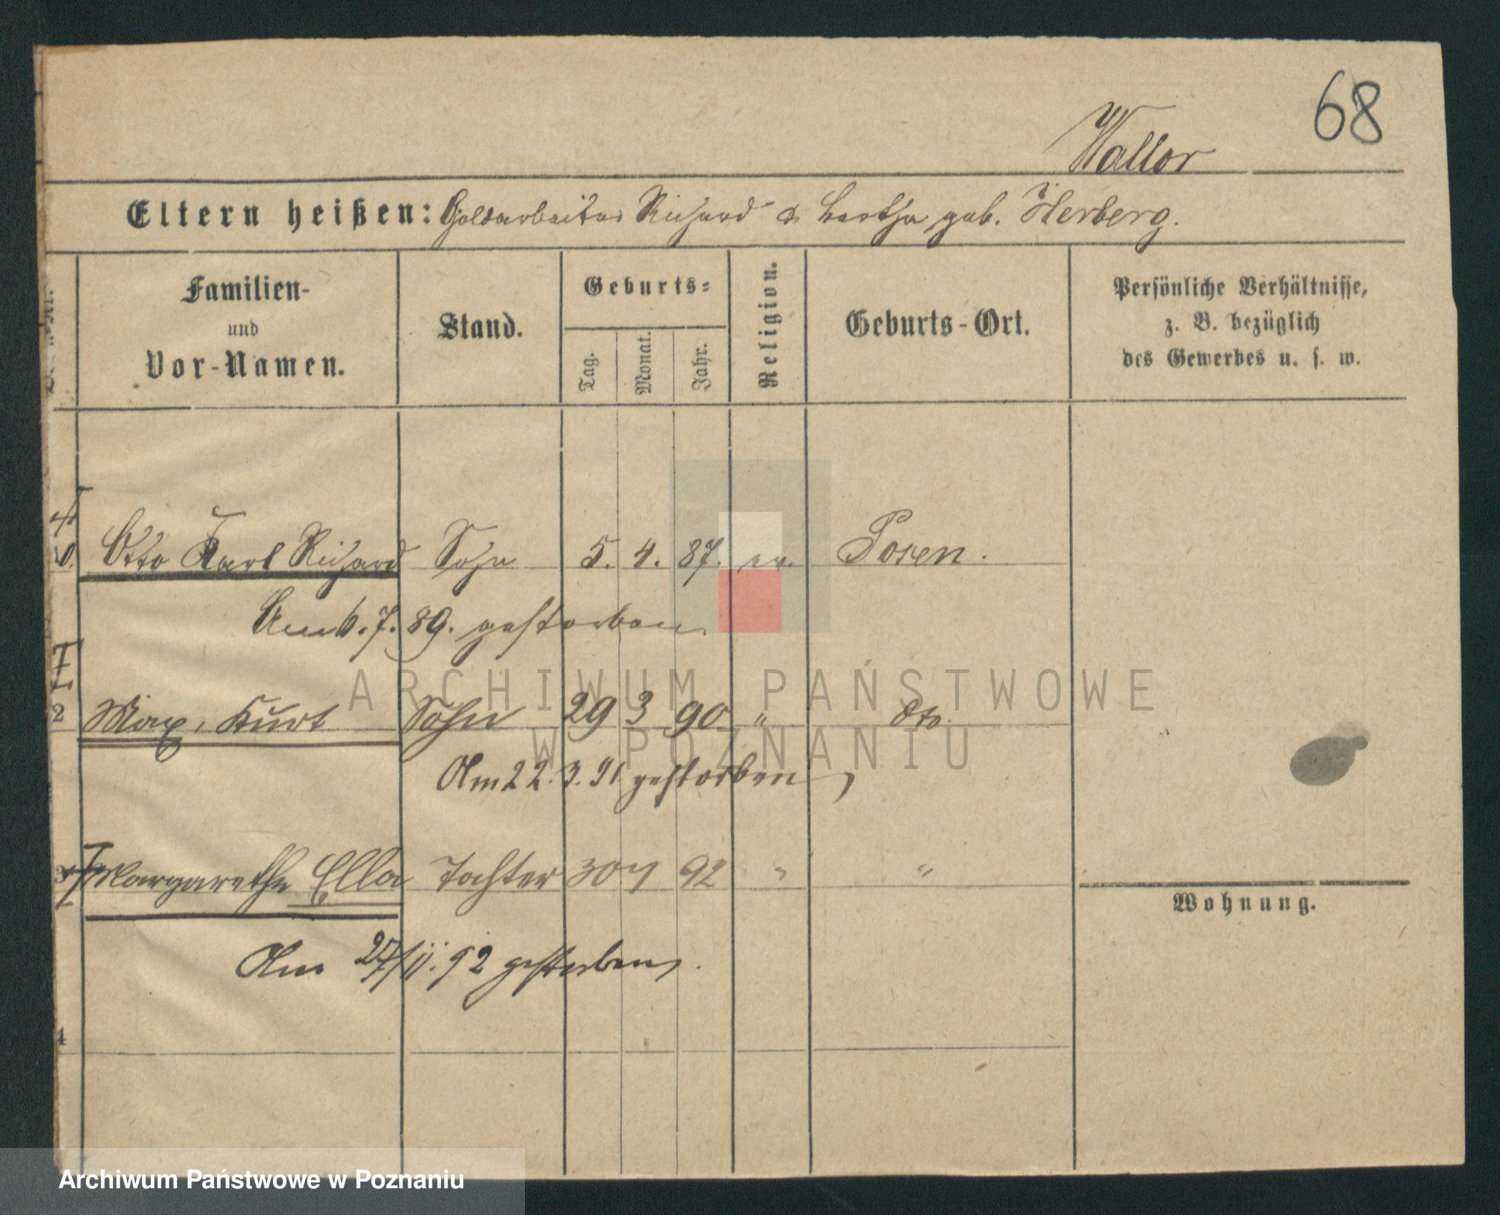 68
Wallor
Eltern heißen: Goldarbeiter Richard & Bertha geb. Herberg.
Familien- und Vor-Namen.
Stand.
Geburts-
Tag. Monat. Jahr.
Religion.
Geburts-Ort.
Persönliche Verhältnisse, z. B. bezüglich des Gewerbes u. s. w.
Otto Karl Richard Sohn 5. 4. 87. ev. Posen.
Am 6. 7. 89. gestorben
2 Max, Kurt Sohn 29 3 90 " dto.
Am 22. 3. 91. gestorben
Margarethe Ella Tochter 30 7 92 " "
Wohnung.
Am 27/11. 92 gestorben.
4
ARCHIWUM PAŃSTWOWE
W POZNANIU
Archiwum Państwowe w Poznaniu